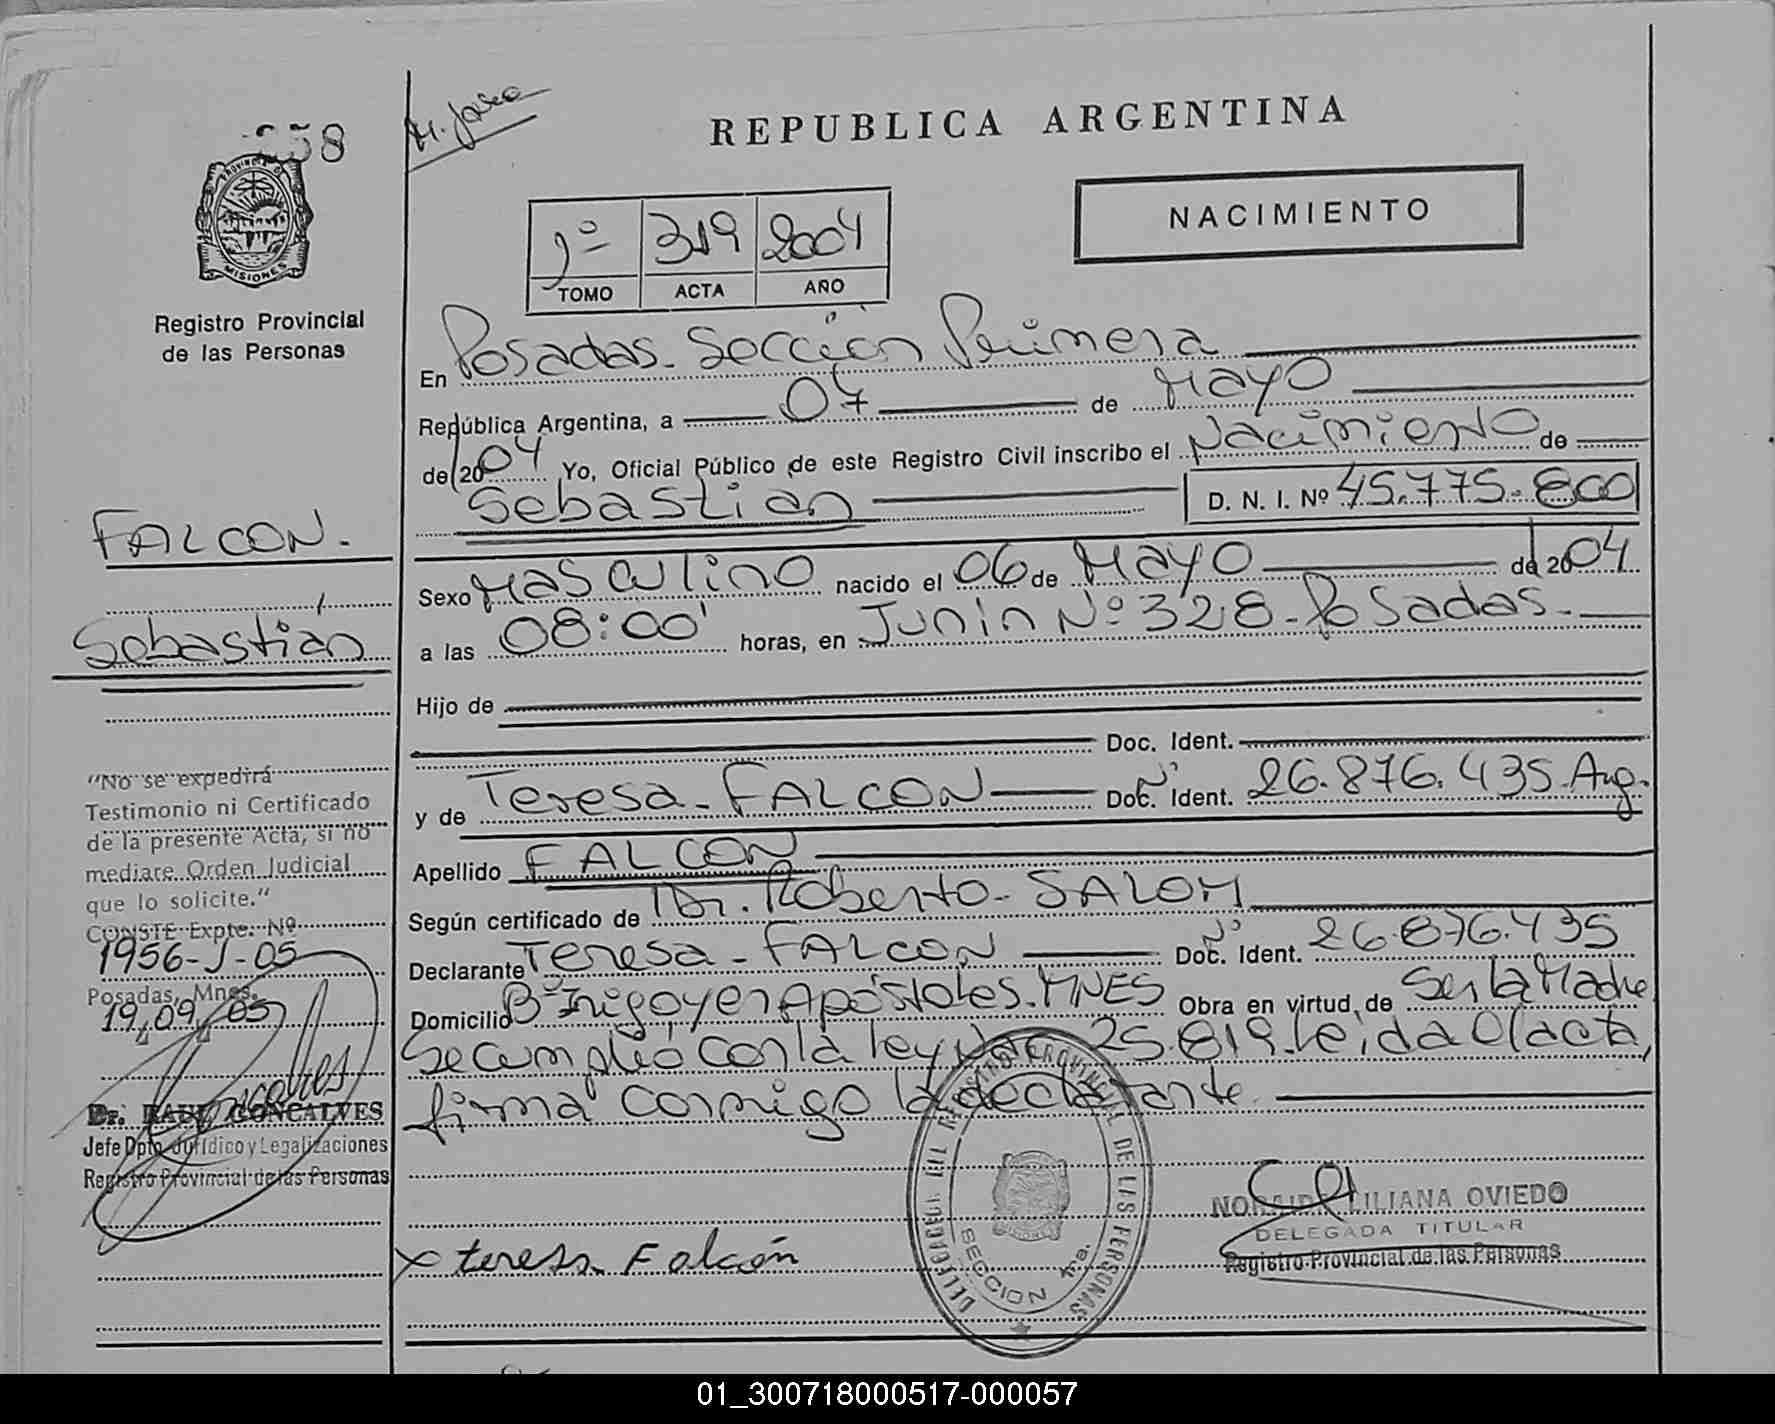 258
M. Jasea
REPUBLICA ARGENTINA
PROVINCIA DE
MISIONES
Registro Provincial
de las Personas
NACIMIENTO
1º 319 2004
TOMO ACTA AÑO
En Posadas. Sección Primera
República Argentina, a 07 de Mayo
de 2004 Yo, Oficial Público de este Registro Civil inscribo el Nacimiento de
Sebastian D. N. I. Nº 45.775.800
Sexo Masculino nacido el 06 de Mayo de 2004
a las 08:00' horas, en Junin Nº 328 - Posadas.
Hijo de
Doc. Ident.
y de Teresa - FALCON Doc. Ident. Nº 26.876.435 Arg.
Apellido FALCON
Según certificado de Dr. Roberto - SALOM
Declarante Teresa - FALCON Doc. Ident. Nº 26.876.435
Domicilio Bº Irigoyen Apóstoles. MNES Obra en virtud de Ser la Madre
Se cumplió con la ley Nac 25.819. Leida el acta,
firma conmigo la declarante.
FALCON.
Sebastián
"No se expedirá
Testimonio ni Certificado
de la presente Acta, si no
mediare Orden Judicial
que lo solicite."
CONSTE Expte. Nº
1956-J-05
Posadas, Mnes.
19,09,05
Dr. RAUL GONCALVES
Jefe Dpto. Jurídico y Legalizaciones
Registro Provincial de las Personas
x teresa Falcón
DELEGACION DEL REGISTRO PROVINCIAL DE LAS PERSONAS
SECCION 1ra.
LILIANA OVIEDO
DELEGADA TITULAR
Registro Provincial de las Personas
01_300718000517-000057